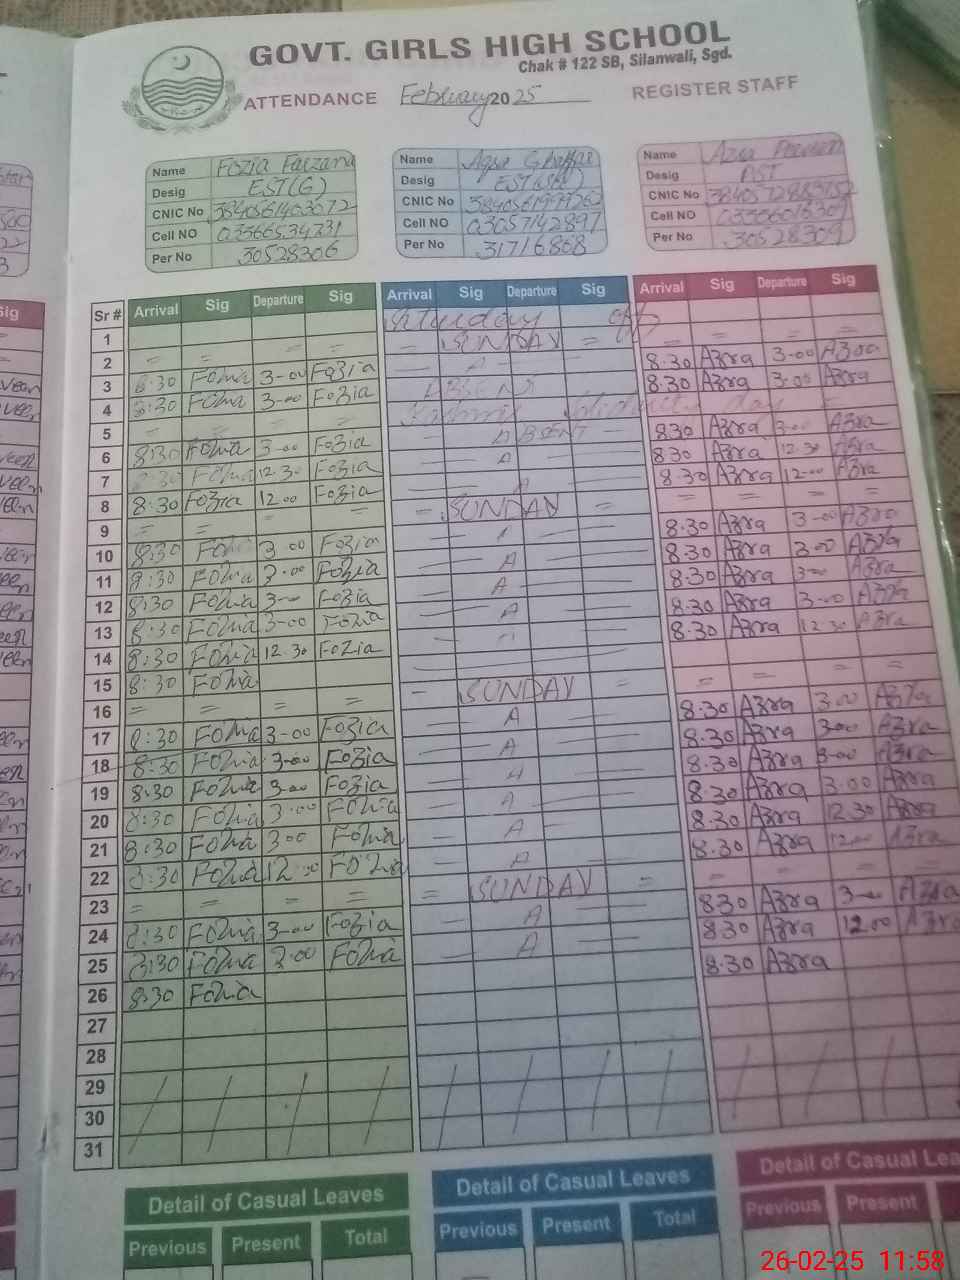 GOVT. GIRLS HIGH SCHOOL
Chak # 122 SB, Silanwali, Sgd.
ATTENDANCE February 2025 REGISTER STAFF
Name Fozia Farzana Name Aqsa Ghaffar Name
Desig EST(G) Desig Desig
CNIC No CNIC No CNIC No
Cell NO 03366534331 Cell NO 03057142897 Cell NO
Per No 30528306 Per No 31716868 Per No 30528309
Sr # Arrival Sig Departure Sig Arrival Sig Departure Sig Arrival Sig Departure Sig
1 Saturday off
2 = = = = = SUNDAY = = = = =
3 8:30 Fozia 3-00 Fozia - A - 8.30 Azra 3-00 Azra
4 8:30 Fozia 3-00 Fozia ABSENT 8.30 Azra 3-00 Azra
5 = = = = Kashmir Solidarity day
6 8:30 Fozia 3-00 Fozia - ABSENT - 8.30 Azra 3-00 Azra
7 8:30 Fozia 12.30 Fozia - A - 8.30 Azra 12.30 Azra
8 8:30 Fozia 12.00 Fozia - A - 8.30 Azra 12-00 Azra
9 = = = = - SUNDAY = = = = =
10 8:30 Fozia 3-00 Fozia - A - 8.30 Azra 3-00 Azra
11 8:30 Fozia 3-00 Fozia - A - 8.30 Azra 3-00 Azra
12 8:30 Fozia 3-00 Fozia - A - 8.30 Azra 3-00 Azra
13 8:30 Fozia 3-00 Fozia - A - 8.30 Azra 3-00 Azra
14 8:30 Fozia 12.30 Fozia - A - 8.30 Azra 12.30 Azra
15 8:30 Fozia
16 = = = = - SUNDAY = = = = =
17 8:30 Fozia 3-00 Fozia - A - 8.30 Azra 3-00 Azra
18 8:30 Fozia 3-00 Fozia - A - 8.30 Azra 3-00 Azra
19 8:30 Fozia 3-00 Fozia - A - 8.30 Azra 3-00 Azra
20 8:30 Fozia 3-00 Fozia - A - 8.30 Azra 3-00 Azra
21 8:30 Fozia 3-00 Fozia - A - 8.30 Azra 12.30 Azra
22 8:30 Fozia 12:00 Fozia - A - 8.30 Azra 12-00 Azra
23 = = = = = SUNDAY = = = = =
24 8:30 Fozia 3-00 Fozia - A - 8.30 Azra 3-00 Azra
25 8:30 Fozia 3-00 Fozia - A - 8.30 Azra 12.00 Azra
26 8:30 Fozia 8.30 Azra
27
28
29
30
31
Detail of Casual Leaves Detail of Casual Leaves Detail of Casual Lea
Previous Present Total Previous Present Total Previous Present
26-02-25 11:58